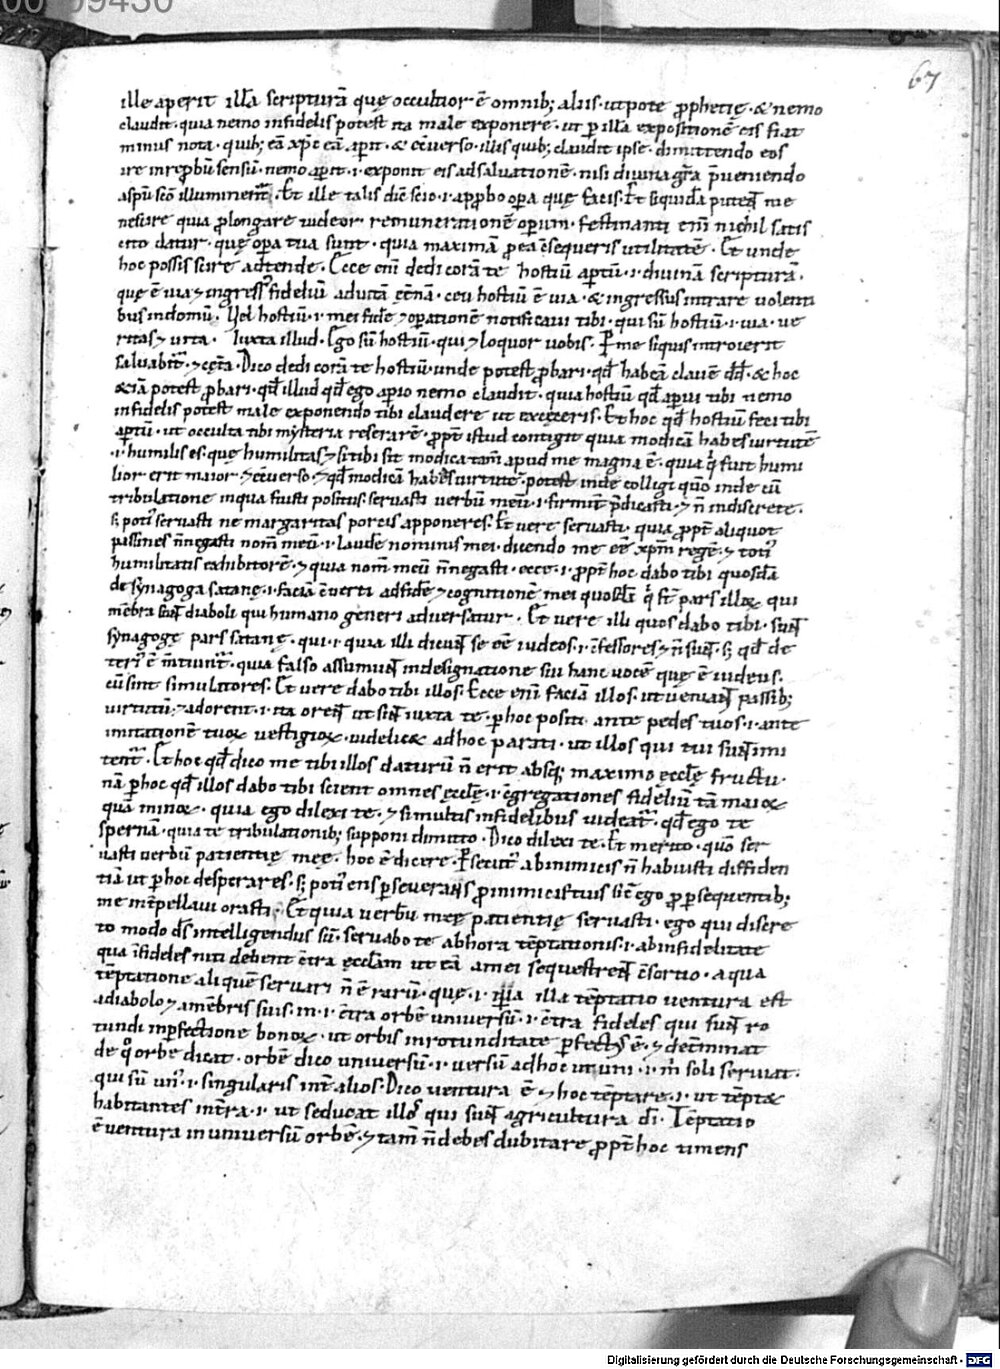 00009430
67
ille aperit illã scripturã quę occultior ẽ omnib; aliis · utpote ꝓphetię · & nemo
claudit · quia nemo infidelis potest ita male exponere · ut ꝑ illã expositionẽ eis fiat
minus nota · quib; eã xp̃c eã apit · & ecũerso · illis quib; claudit ipse · dimittendo eos
ire in reprobũ sensũ · nemo apit · i · exponit eis ad saluationẽ · nisi diuina gr̃a p̃ueniendo
aspũ sc̃o illuminent̃ · Et ille talis diẽ scio · i · appbo opa quę facis · Et siquidã putent̃ me
nescire quia ꝓlongare uideor remunerationẽ opum · festinanti em̃ nichil satis
cito datur · quę opa tua sunt · quia maximã ꝓ ea c̃sequeris utilitatẽ · Et unde
hoc possis scire adtende · Ecce em̃ dedi corã te hostiũ aptũ · i · diuinã scripturã ·
quę ẽ uia ⁊ ingress᷒ fideliũ ad uitã et̃nã · ceu hostiũ ẽ uia · & ingressus intrare uolenti
bus in domũ · Vel hostiũ · i · mei fidẽ ⁊ opationẽ notificaui tibi · qui sũ hostiũ · i · uia · ue
ritas ⁊ uita · Iuxta illud · Ego sũ hostiũ · qui ⁊ loquor uobis · P me siquis introierit
saluabit̃ · ⁊ cęt̃a · Dico dedi corã te hostiũ · unde potest ꝓbari · qd̃ habeã clauẽ dd̃ · & hoc
&iã potest ꝓbari · qd̃ illud qd̃ ego apio nemo claudit · quia hostiũ qd̃ apui tibi nemo
infidelis potest male exponendo tibi claudere ut excęceris · Et hoc qd̃ hostiũ feci tibi
aptũ · ut occulta tibi mysteria reserarẽ · ꝓpt̃ istud contigit quia modicã habes uirtutẽ
· i · humilis es · quę humilitas ⁊ si tibi sit modica tam̃ apud me magna ẽ · quia q̓ fuit humi
lior erit maior ⁊ ecũerso · ⁊ qd̃ modicã habes uirtutẽ · potest inde colligi quõo inde cũ
tribulatione in qua fuisti positus · seruasti uerbũ meũ · i · firmit̃ p̃dicasti · ⁊ ñ indiscrete ·
s; poti᷒ seruasti ne margaritas porcis apponeres · Et uere seruasti · quia ꝓpt̃ aliquot
passiones ñ negasti nom̃ meũ · i · laudẽ nominis mei · dicendo me eẽ xp̃m regẽ · ⁊ toti᷒
humilitatis exhibitorẽ · ⁊ quia nom̃ meũ ñ negasti · ecce · i · ꝓpt̃ hoc dabo tibi quosdã
de synagoga satanę · i · faciã c̃uerti ad fidẽ ⁊ cognitionẽ mei quosdã q̓ st̃ pars illoꝝ qui
mẽbra sunt̃ diaboli qui humano generi aduersatur · Et uere illi quos dabo tibi · sunt̃
synagogę pars satanę · qui · i · quia illi dicunt̃ se eẽ iudeos · i · c̃fessores ⁊ ñ sunt̃ · s; qd̃ de
teri᷒ ẽ m̃tiunt̃ · quia falso assumunt̃ in designatione sui hanc uocẽ quę ẽ iudeus ·
cũ sint simulatores · Et uere dabo tibi illos · Ecce em̃ faciã illos · ut ueniant̃ passib;
uirtutũ · ⁊ adorent · i · ita orent̃ ut sint̃ iuxta te · ꝑ hoc positi · ante pedes tuos · i · ante
imitationẽ tuoꝝ uestigioꝝ · uidelic& ad hoc parati · ut illos qui tui sunt̃ imi
tent̃ · Et hoc qd̃ dico me tibi illos daturũ ñ erit absq; maximo ęccłę fructu ·
nã ꝑ hoc qd̃ illos dabo tibi scient omnes ęccłę · i · c̃gregationes fideliũ tã maioꝝ
quã minoꝝ · quia ego dilexi te · ⁊ si multis infidelibus uideat̃ · qd̃ ego te
spernã · quia te tribulationib; supponi dimitto · Dico dilexi te · Et merito · quõo ser
uasti uerbũ patientię meę · hoc ẽ dicere · Psecut᷒ ab inimicis ñ habuisti diffiden
tiã ut ꝑ hoc desperares · s; poti᷒ ens pseuerans ꝓ inimicis tuis sic̃ ego ꝓ psequentib;
me int̃pellaui orasti · Et quia uerbũ meę patientię seruasti · ego qui discre
to modo ds̃ intelligendus sũ · seruabo te ab hora tẽptationis · i · ab infidelitate
qua ĩfideles niti debent c̃tra ęccłam ut eã a mei sequestrent̃ c̃sortio · a qua
tẽptatione aliquẽ seruari ñ ẽ rarũ · quę · i · illa tẽptatio uentura est
a diabolo ⁊ a mẽbris suis · in · i · c̃tra orbẽ uniuersũ · i · c̃tra fideles qui sunt̃ ro
tundi in pfectione bonoꝝ · ut orbis in rotunditate pfect᷒ ẽ · ⁊ det̃minat
de q̊ orbe dicat · orbẽ dico uniuersũ · i · uersũ ad hoc ut uni · i · m̃ soli seruiat ·
qui sũ un᷒ · i · singularis int̃ alios · Dico uentura ẽ ⁊ hoc tẽptare · i · ut tẽpt&
habitantes int̃ra · i · ut seducat illos qui sunt̃ agricultura dĩ · Tẽptatio
ẽ uentura in uniuersũ orbẽ · ⁊ tam̃ ñ debes dubitare ꝓpt̃ hoc timens
Digitalisierung gefördert durch die Deutsche Forschungsgemeinschaft - DFG